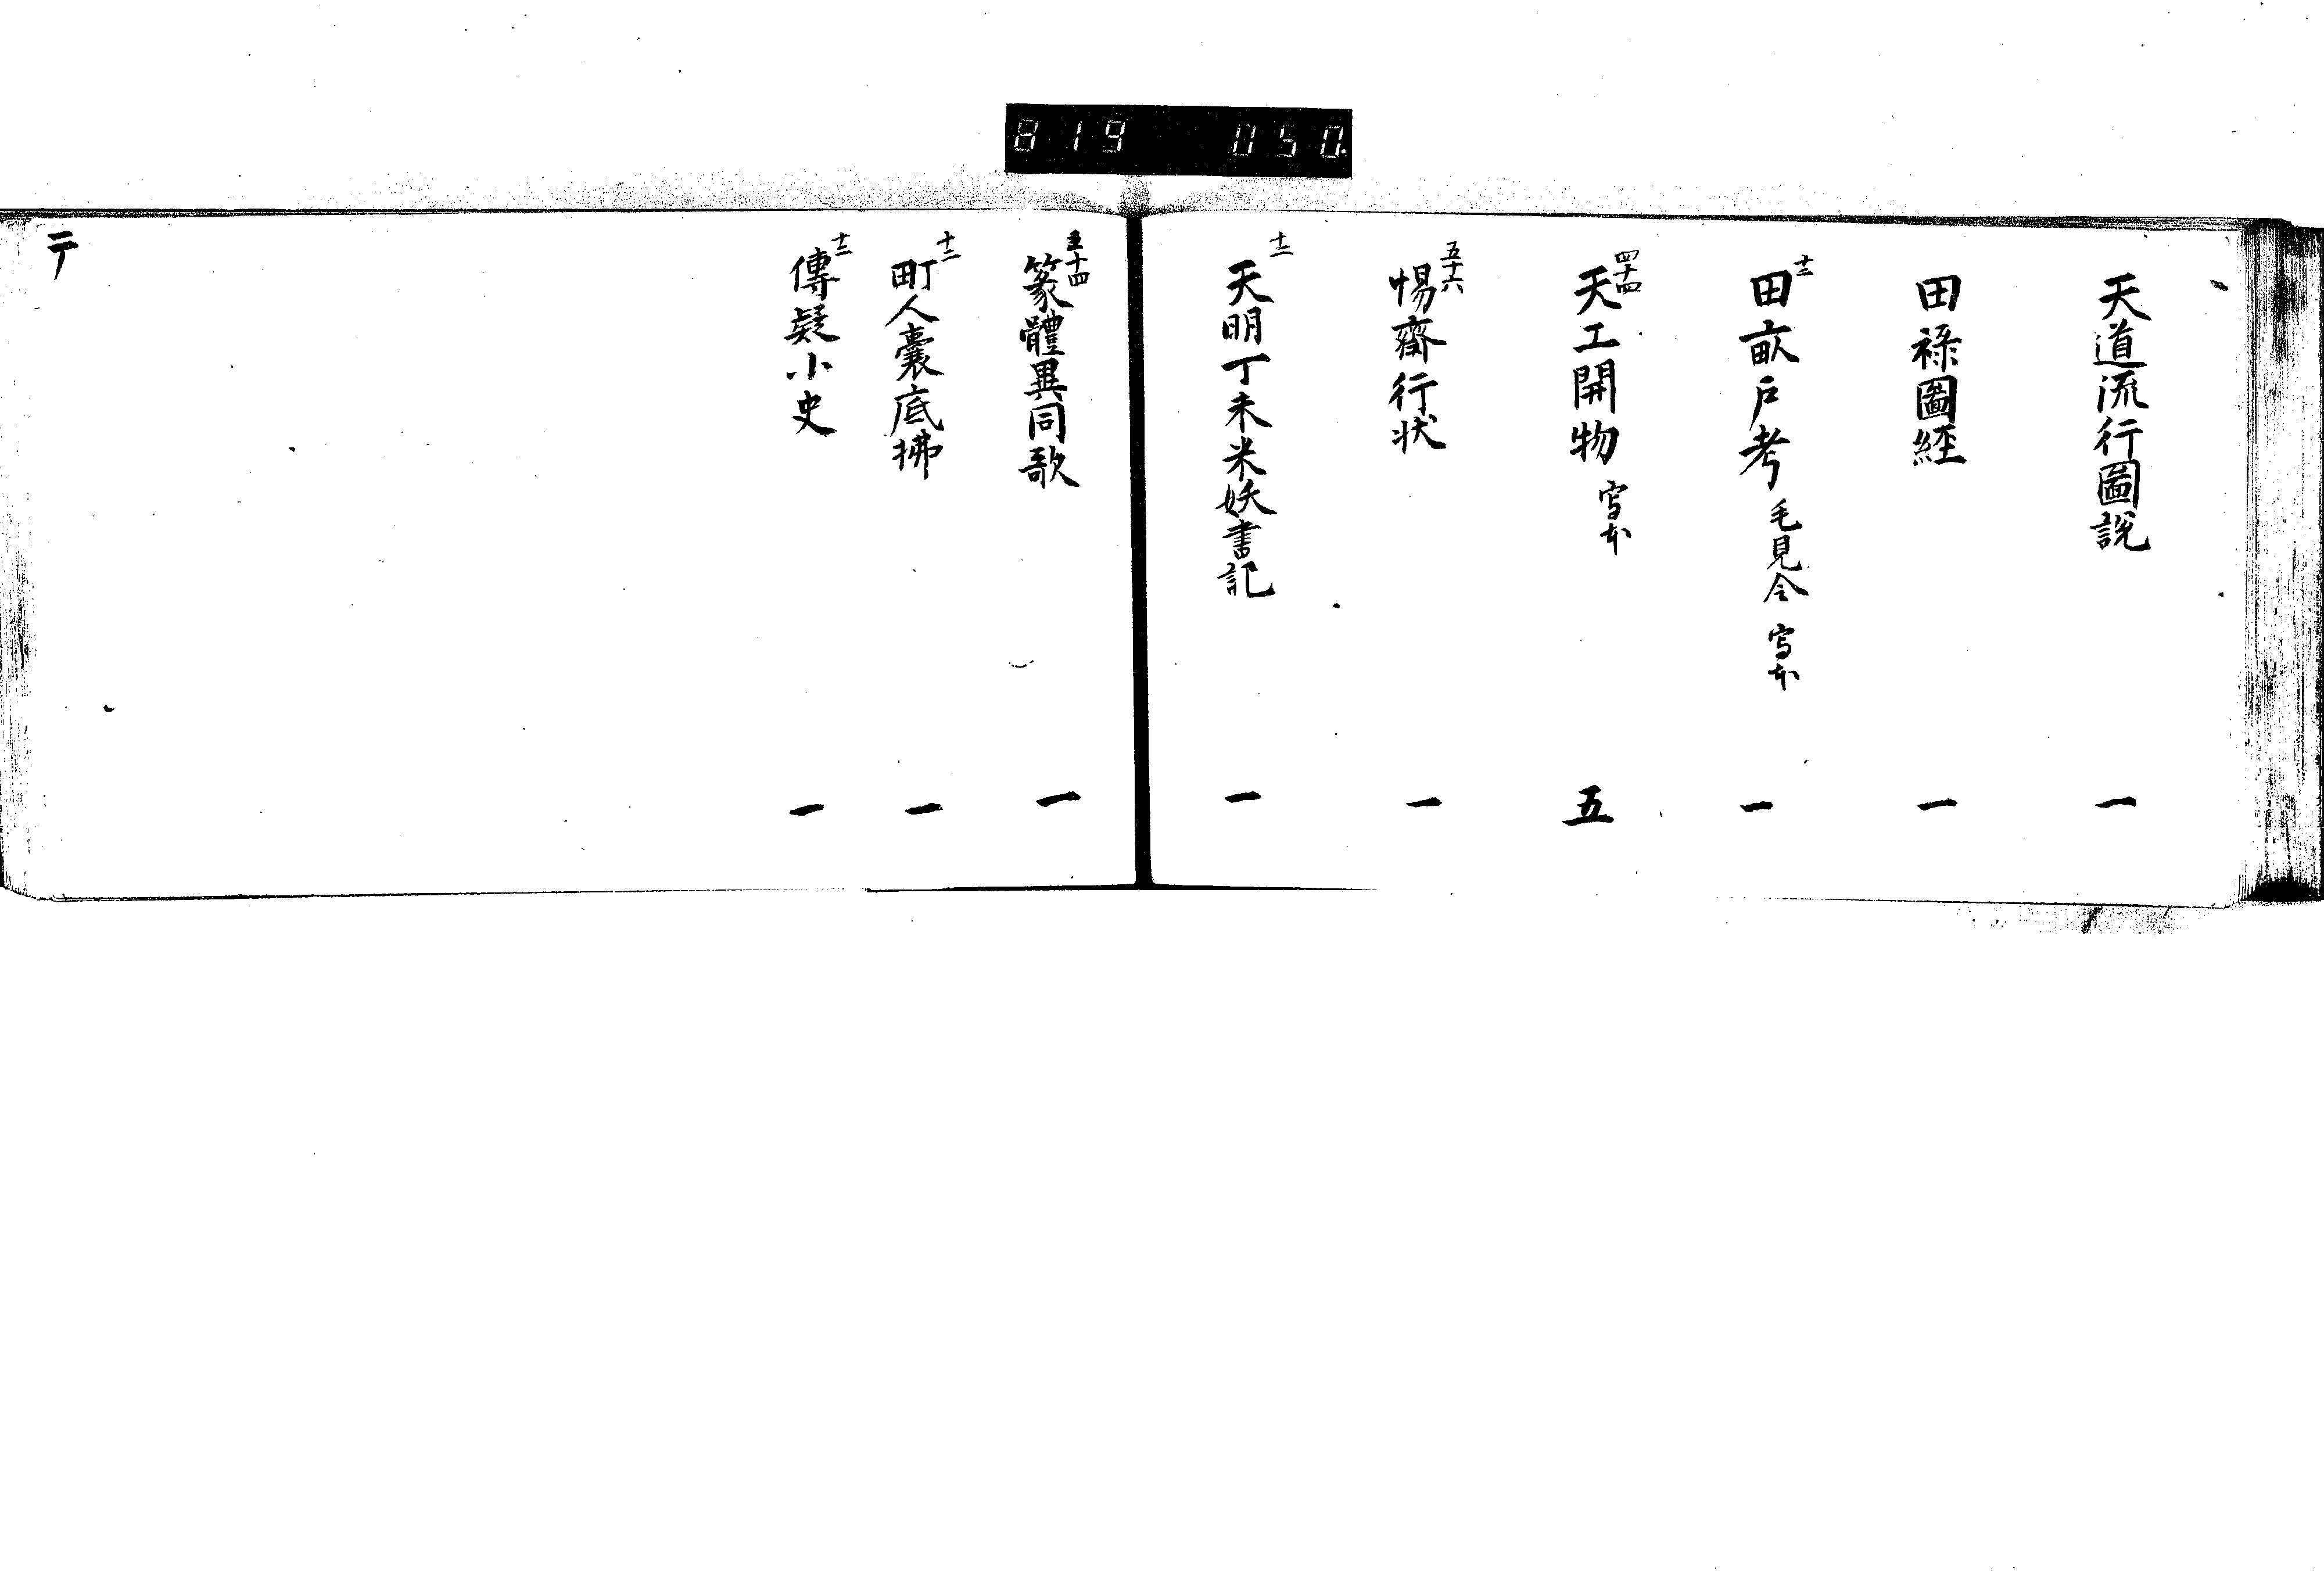 819 050
天道流行圖説 一
田禄圖経 一
十二 田畝戸考 毛見令 写本 一
四十四 天工開物 写本 五
五十六 惕齋行状 一
十二 天明丁未米妖書記 一
五十四 篆體異同歌 一
十二 町人嚢底拂 一
十二 傳疑小史 一
テ